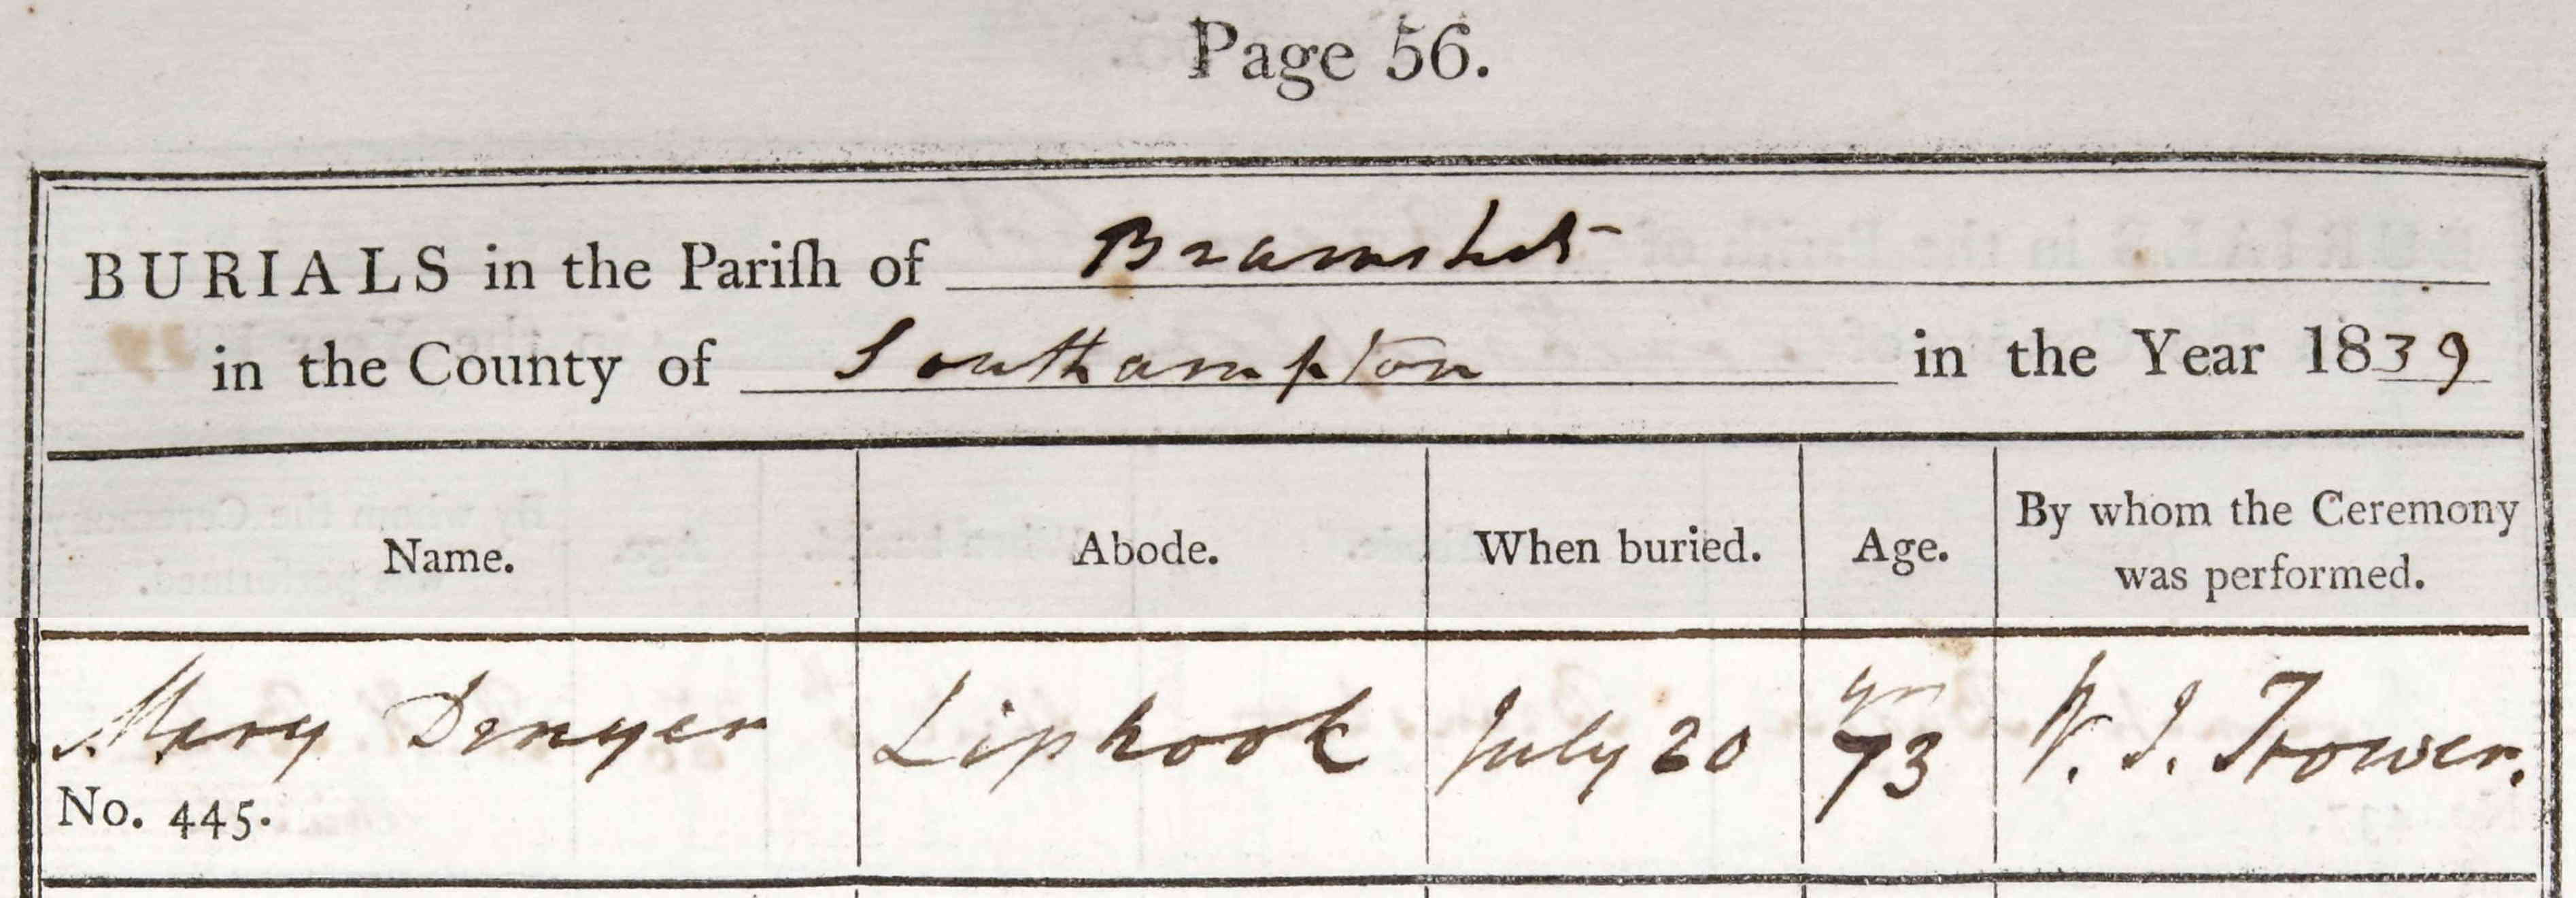 Page 56.
BURIALS in the Pariſh of Bramshot
in the County of Southampton in the Year 1839
Name. Abode. When buried. Age. By whom the Ceremony was performed.
Mary Denyer Liphook July 20 yrs 73 W. J. Trower.
No. 445.